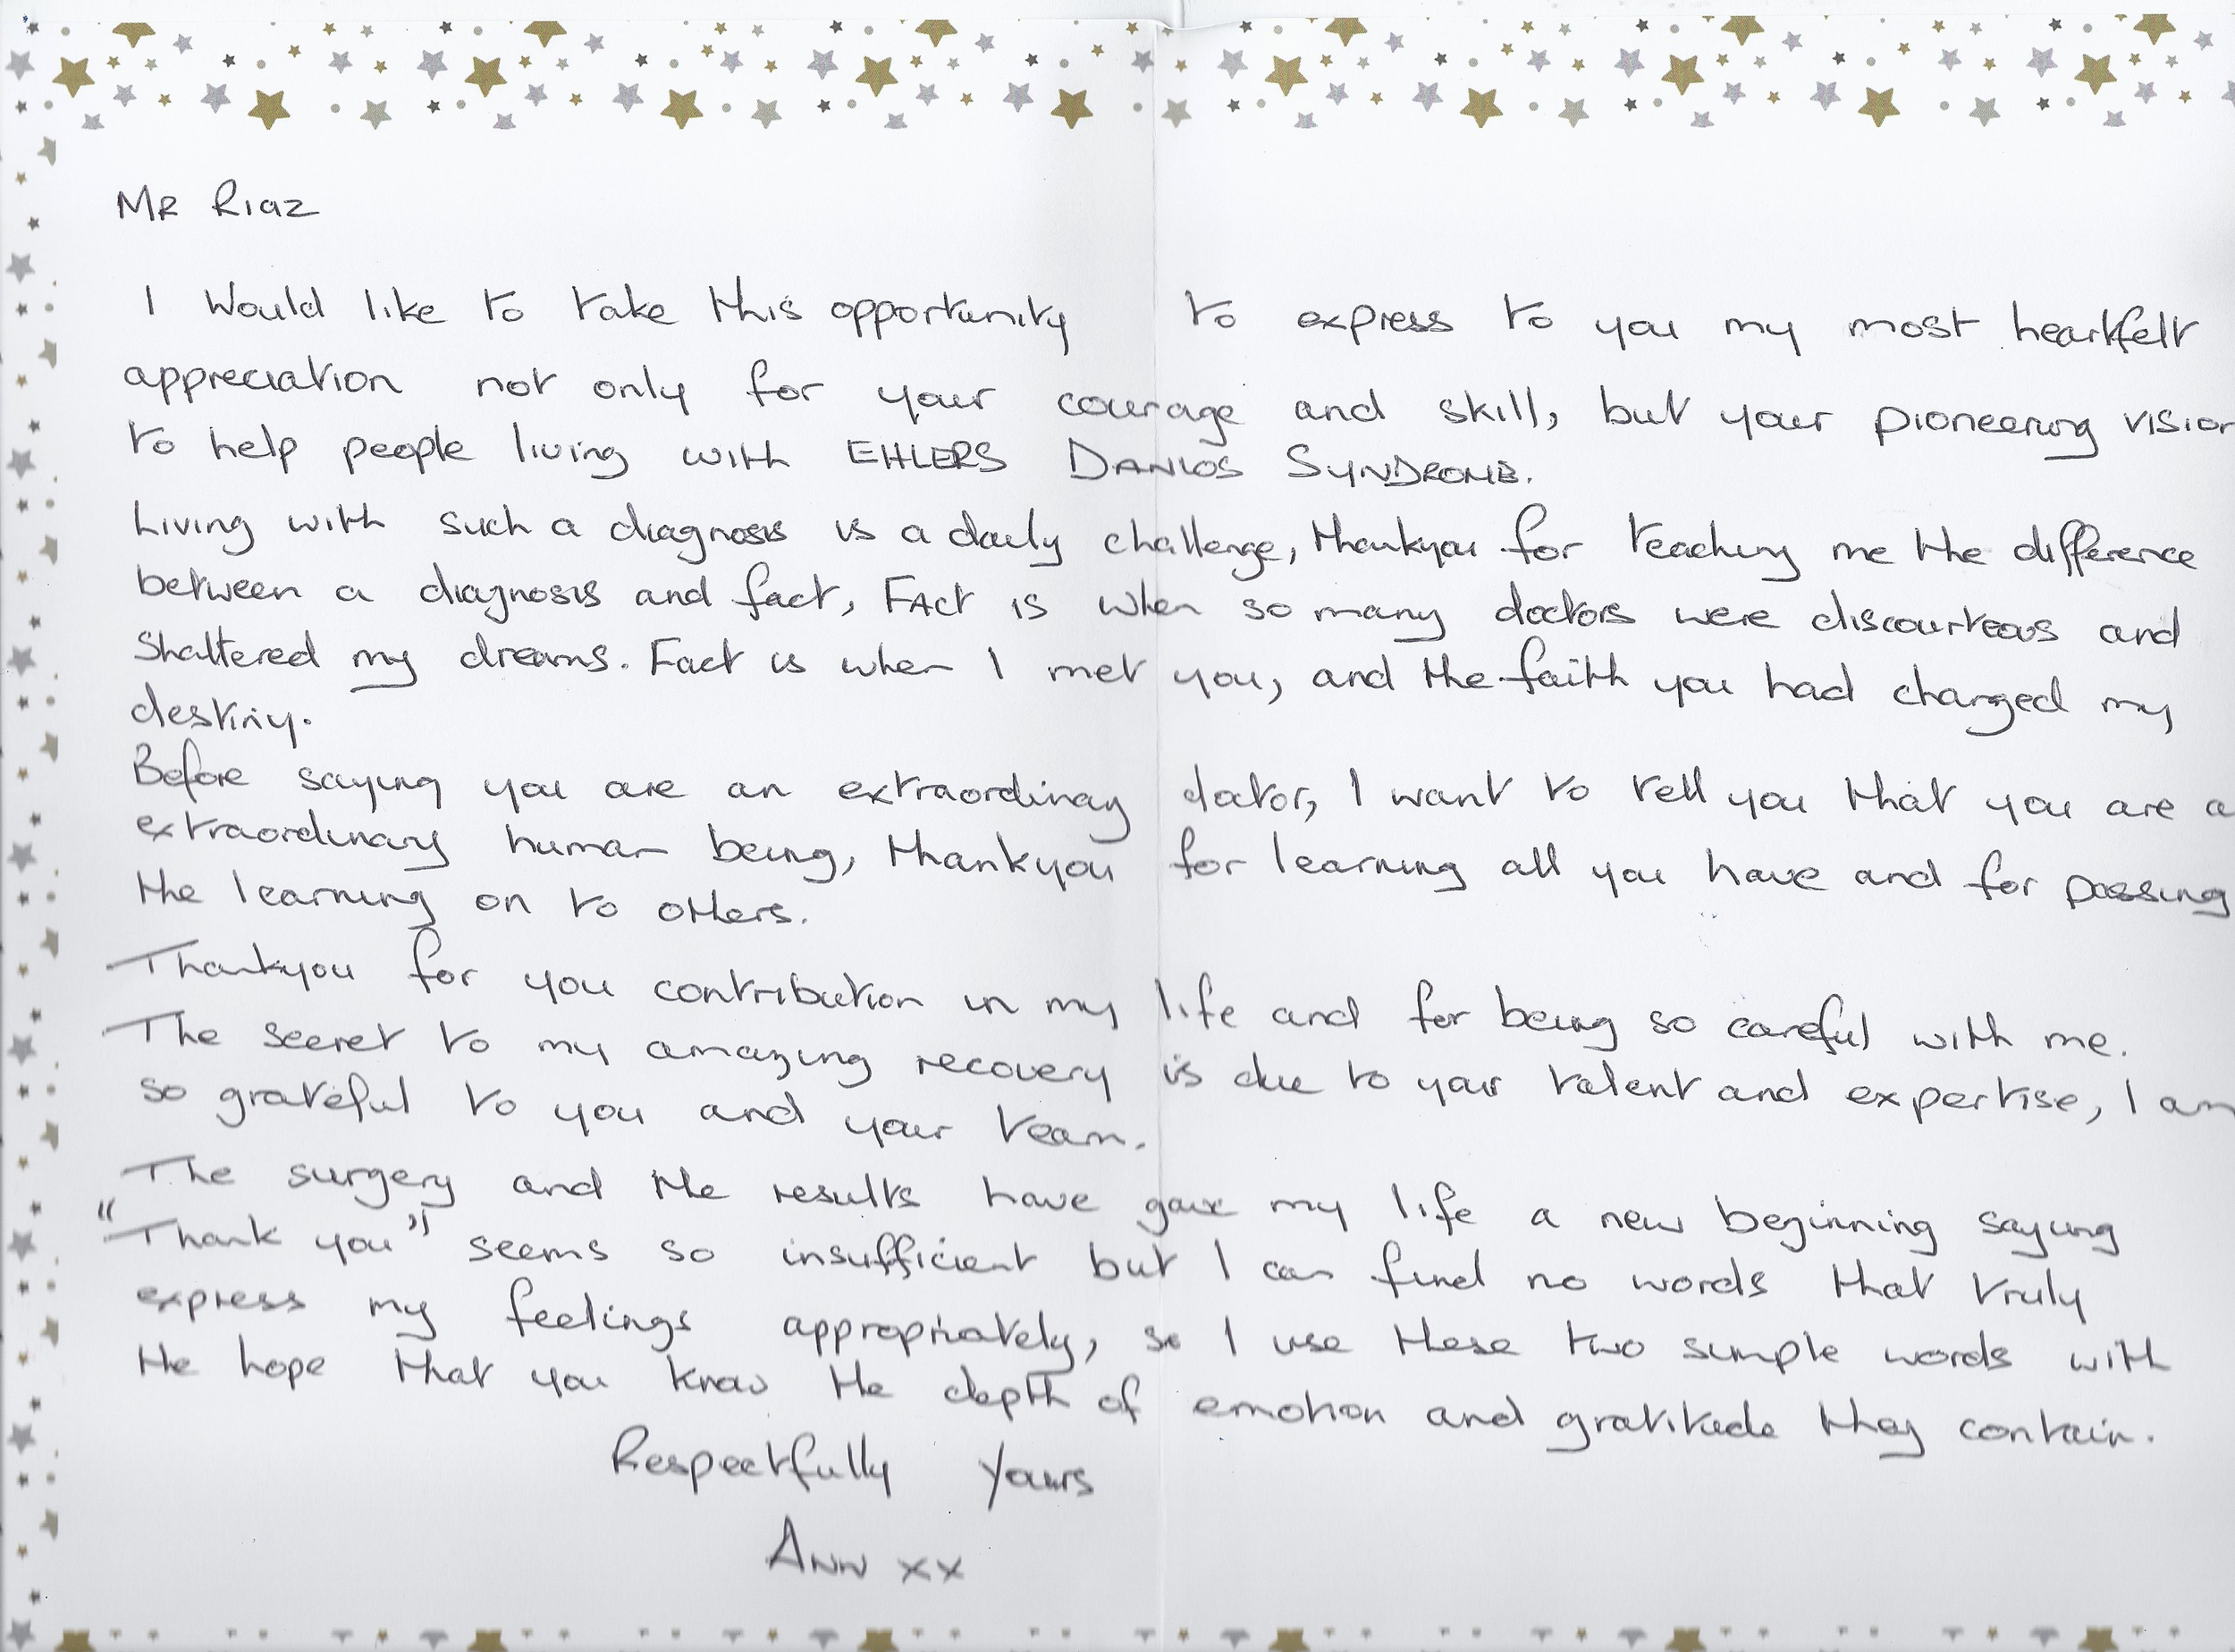 Mr Riaz
I would like to take this opportunity to express to you my most heartfelt
appreciation not only for your courage and skill, but your pioneering vision
to help people living with EHLERS DANLOS SYNDROME.
Living with such a diagnosis is a daily challenge, thankyou for teaching me the difference
between a diagnosis and fact, FAct is when so many doctors were discourteous and
shattered my dreams. Fact is when I met you, and the faith you had changed my
destiny.
Before saying you are an extraordinay doctor, I want to tell you that you are a
extraordinary human being, thankyou for learning all you have and for passing
the learning on to others.
Thankyou for you contribution in my life and for being so careful with me.
The secret to my amazing recovery is due to your talent and expertise, I am
so grateful to you and your team.
The surgery and the results have gave my life a new beginning saying
"Thank you" seems so insufficient but I can find no words that truly
express my feelings appropriately, so I use these two simple words with
the hope that you know the depth of emotion and gratitude they contain.
Respectfully Yours
Ann xx